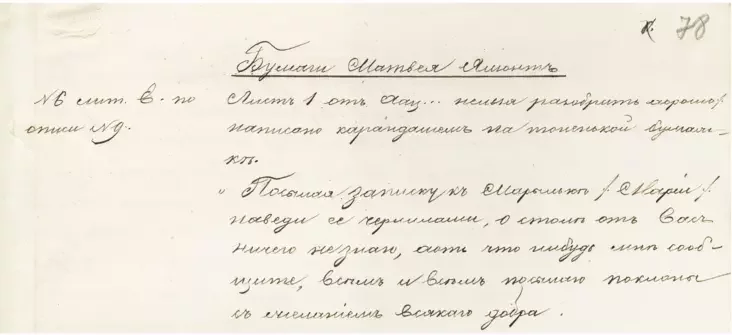 к. 78
Бумаги Матвея Ямонтъ
№6 лит. Е. по
описи №9.
Листъ 1 отъ Аац... нельзя разобрать хорошо /
написано карандашемъ на тоненькой бумаж-
кѣ.
„ Посылая записку къ Марылькѣ / Марiи /
наведи ее чернилами, о столы отъ Васъ
ничего не знаю, хоть что нибудь мнѣ сооб-
щите, всѣмъ и всѣмъ посылаю поклоны
съ желанiемъ всякаго добра.